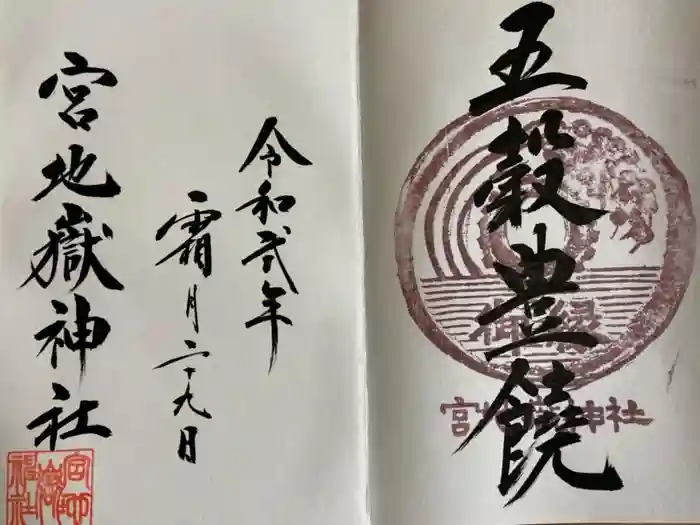 五穀豊饒
御縁
宮地嶽神社
令和弐年
霜月二十九日
宮地嶽神社
宮地嶽神社